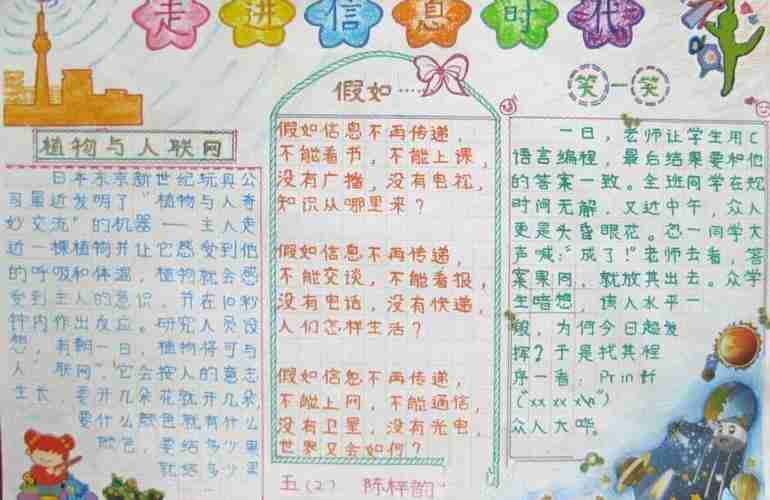 走进信息时代
植物与人联网
日本东京新世纪玩具公
司最近发明了"植物与人奇
妙交流"的机器——主人走
近一棵植物并让它感受到他
的呼吸和体温,植物就会感
受到主人的意识,并在10秒
钟内作出反应。研究人员设
想,有朝一日,植物将可与
人"联网",它会按人的意志
生长,要开几朵花就开几朵,
要什么颜色就有什么
颜色,要结多少果
就结多少果
假如……
假如信息不再传递,
不能看书,不能上课,
没有广播,没有电视,
知识从哪里来?
假如信息不再传递,
不能交谈,不能看报,
没有电话,没有快递,
人们怎样生活?
假如信息不再传递,
不能上网,不能通信,
没有卫星,没有光电,
世界又会如何?
五(2) 陈梓韵
笑一笑
一日,老师让学生用C
语言编程,最后结果要和他
的答案一致。全班同学在短
时间无解,又过中午,众人
更是头昏眼花。忽一同学大
声喊:"成了!"老师去看,答
案果同,就放其出去。众学
生暗想,该人水平一
般,为何今日超发
挥?于是找其程
序一看:Printf
("xx xx x\n")
众人大哗。